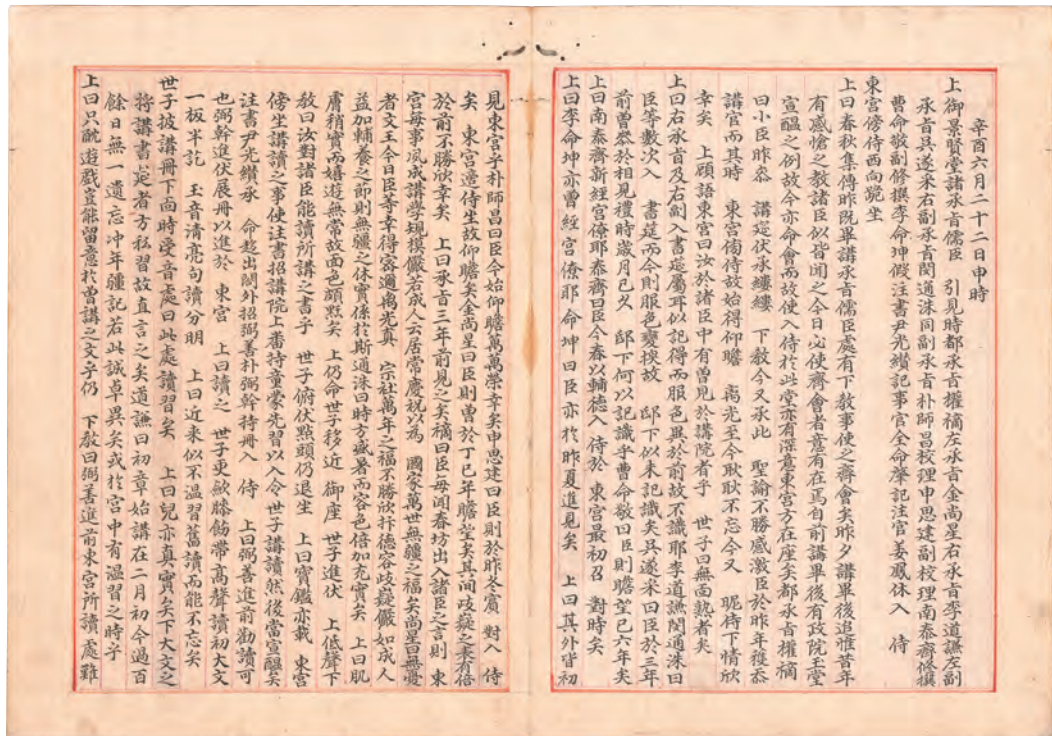 辛酉六月二十二日申時
上御景賢堂諸承旨儒臣 引見時都承旨權𥛚左承旨金尚星右承旨李道謙左副
承旨具遂釆右副承旨閔通洙同副承旨朴師昌校理申思建副校理南泰齊修撰
曹命敬副修撰李命坤假注書尹光纘記事官全命肇記注官姜鳳休入 侍
東宮傍侍西向跪坐
上曰春秋集傳昨旣畢講承旨儒臣處有下敎事使之齊會矣昨夕講畢後追惟昔年
有感愴之敎諸臣似皆聞之今日必使齊會者意有在焉自前講畢後有政院玉堂
宣醞之例故今亦命會而故使入侍於此堂亦有深意東宮方在座矣都承旨權𥛚
曰小臣昨叅 講筵伏承縷縷 下敎今又承此 聖諭不勝感激臣於昨年獲忝
講官而其時 東宮傍侍故始得仰瞻 离光至今耿耿不忘今又 昵侍下情欣
幸矣 上顧語東宮曰汝於諸臣中有曾見於講院者乎 世子曰無面熟者矣
上曰右承旨及右副入書筵屬耳似記得而服色異於前故不識耶李道謙閔通洙曰
臣等數次入 書筵而今則服色變換故 邸下似未記識矣具遂釆曰臣於三年
前曾叅於相見禮時歲月已久 邸下何以記識乎曹命敬曰臣則瞻望已六年矣
上曰南泰齊新經宮僚耶泰齊曰臣今春以輔德入 侍於 東宮最初召 對時矣
上曰李命坤亦曾經宮僚耶 命坤曰臣亦於昨夏進見矣 上曰其外皆初
見東宮乎朴師昌曰臣今始仰瞻萬萬榮幸矣申思建曰臣則於昨冬賓 對入 侍
矣 東宮邊侍坐故仰瞻矣金尚星曰臣則曾於丁巳年瞻望矣其間歧嶷之表有倍
於前不勝欣幸矣 上曰承旨三年前見之矣𥛚曰臣每聞春坊出入諸臣之言則 東
宮每事夙成講學規模儼若成人云居常慶祝以爲 國家萬世無疆之福矣尚星曰無憂
者文王今日臣等幸得密邇离光真 宗社萬年之福不勝欣抃德容歧嶷儼如成人
益加輔養之節則無疆之休實係於斯通洙曰時方盛暑而容色倍加充實矣 上曰肌
膚稍實而嬉遊無常故面色頗黑矣 上仍命世子移近 御座 世子進伏 上低聲下
敎曰汝對諸臣能讀所講之書乎 世子俯伏點頭仍退坐 上曰寶鑑亦載 東宮
傍坐講讀之事使注書招講院上番持童蒙先習以入令 世子講讀然後當宣醞矣
注書尹光纘承 命趍出閤外招弼善朴弼幹持冊入 侍 上曰弼善進前勸讀可
也弼幹進伏展冊以進於 東宮 上曰讀之 世子更斂膝飭帶高聲讀初大文
一板半訖 玉音淸亮句讀分明 上曰近来似不溫習舊讀而能不忘矣
世子披講冊下面時受音處曰此處讀習矣 上曰兒亦真實矣下大文之
將講書筵者方私習故直言之矣道謙曰初章始講在二月初今過百
餘日無一遺忘冲年疆記若此誠卓異矣或於宮中有溫習之時乎
上曰只酖遊戲豈能留意於曾講之文字仍 下敎曰弼善進前東宮所讀處難